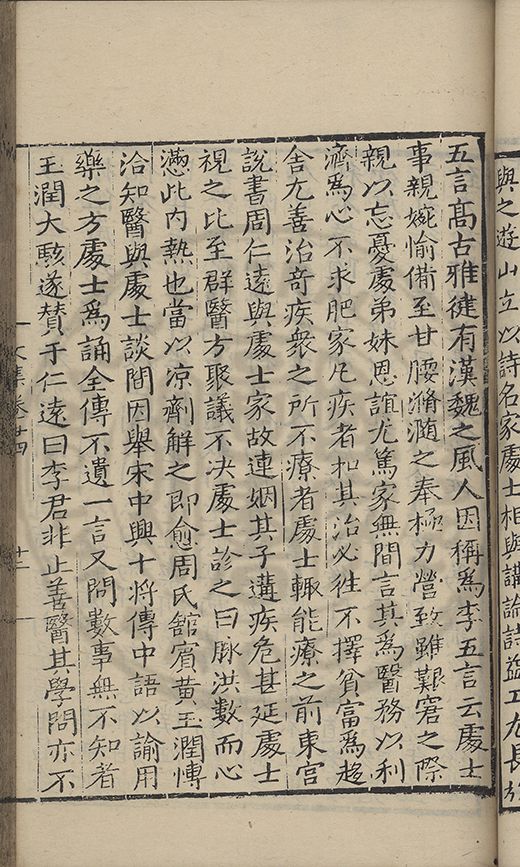 與之遊山立以詩名家處士相與講論詩益工尤長於
五言高古雅健有漢魏之風人因稱為李五言云處士
事親婉愉備至甘腰滫瀡之奉極力營致雖艱窘之際
親以忘憂處弟妹恩誼尤篤家無間言其為醫務以利
濟為心不求肥家凡疾者扣其治必徃不擇貧富為趍
舍尤善治奇疾衆之所不療者處士輙能療之前東宫
說書周仁遠與處士家故連姻其子遘疾危甚延處士
視之比至群醫方聚議不決處士診之曰脉洪數而心
懣此内熱也當以凉劑解之即愈周氏舘賓黃玉潤慱
洽知醫與處士談間因舉宋中興十將傳中語以諭用
藥之方處士為誦全傳不遺一言又問數事無不知者
玉潤大駭遂賛于仁遠曰李君非止善醫其學問亦不
文集卷廿四
十三